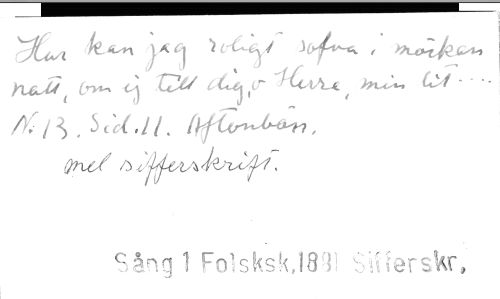 Hur kan jag roligt sofva i mörkan
natt, om ej till dig, o Herre, min lit....
N: 13. Sid. 11. Aftonbön.
mel sifferskrift.
Sång 1 Folsksk,1881 Sifferskr,